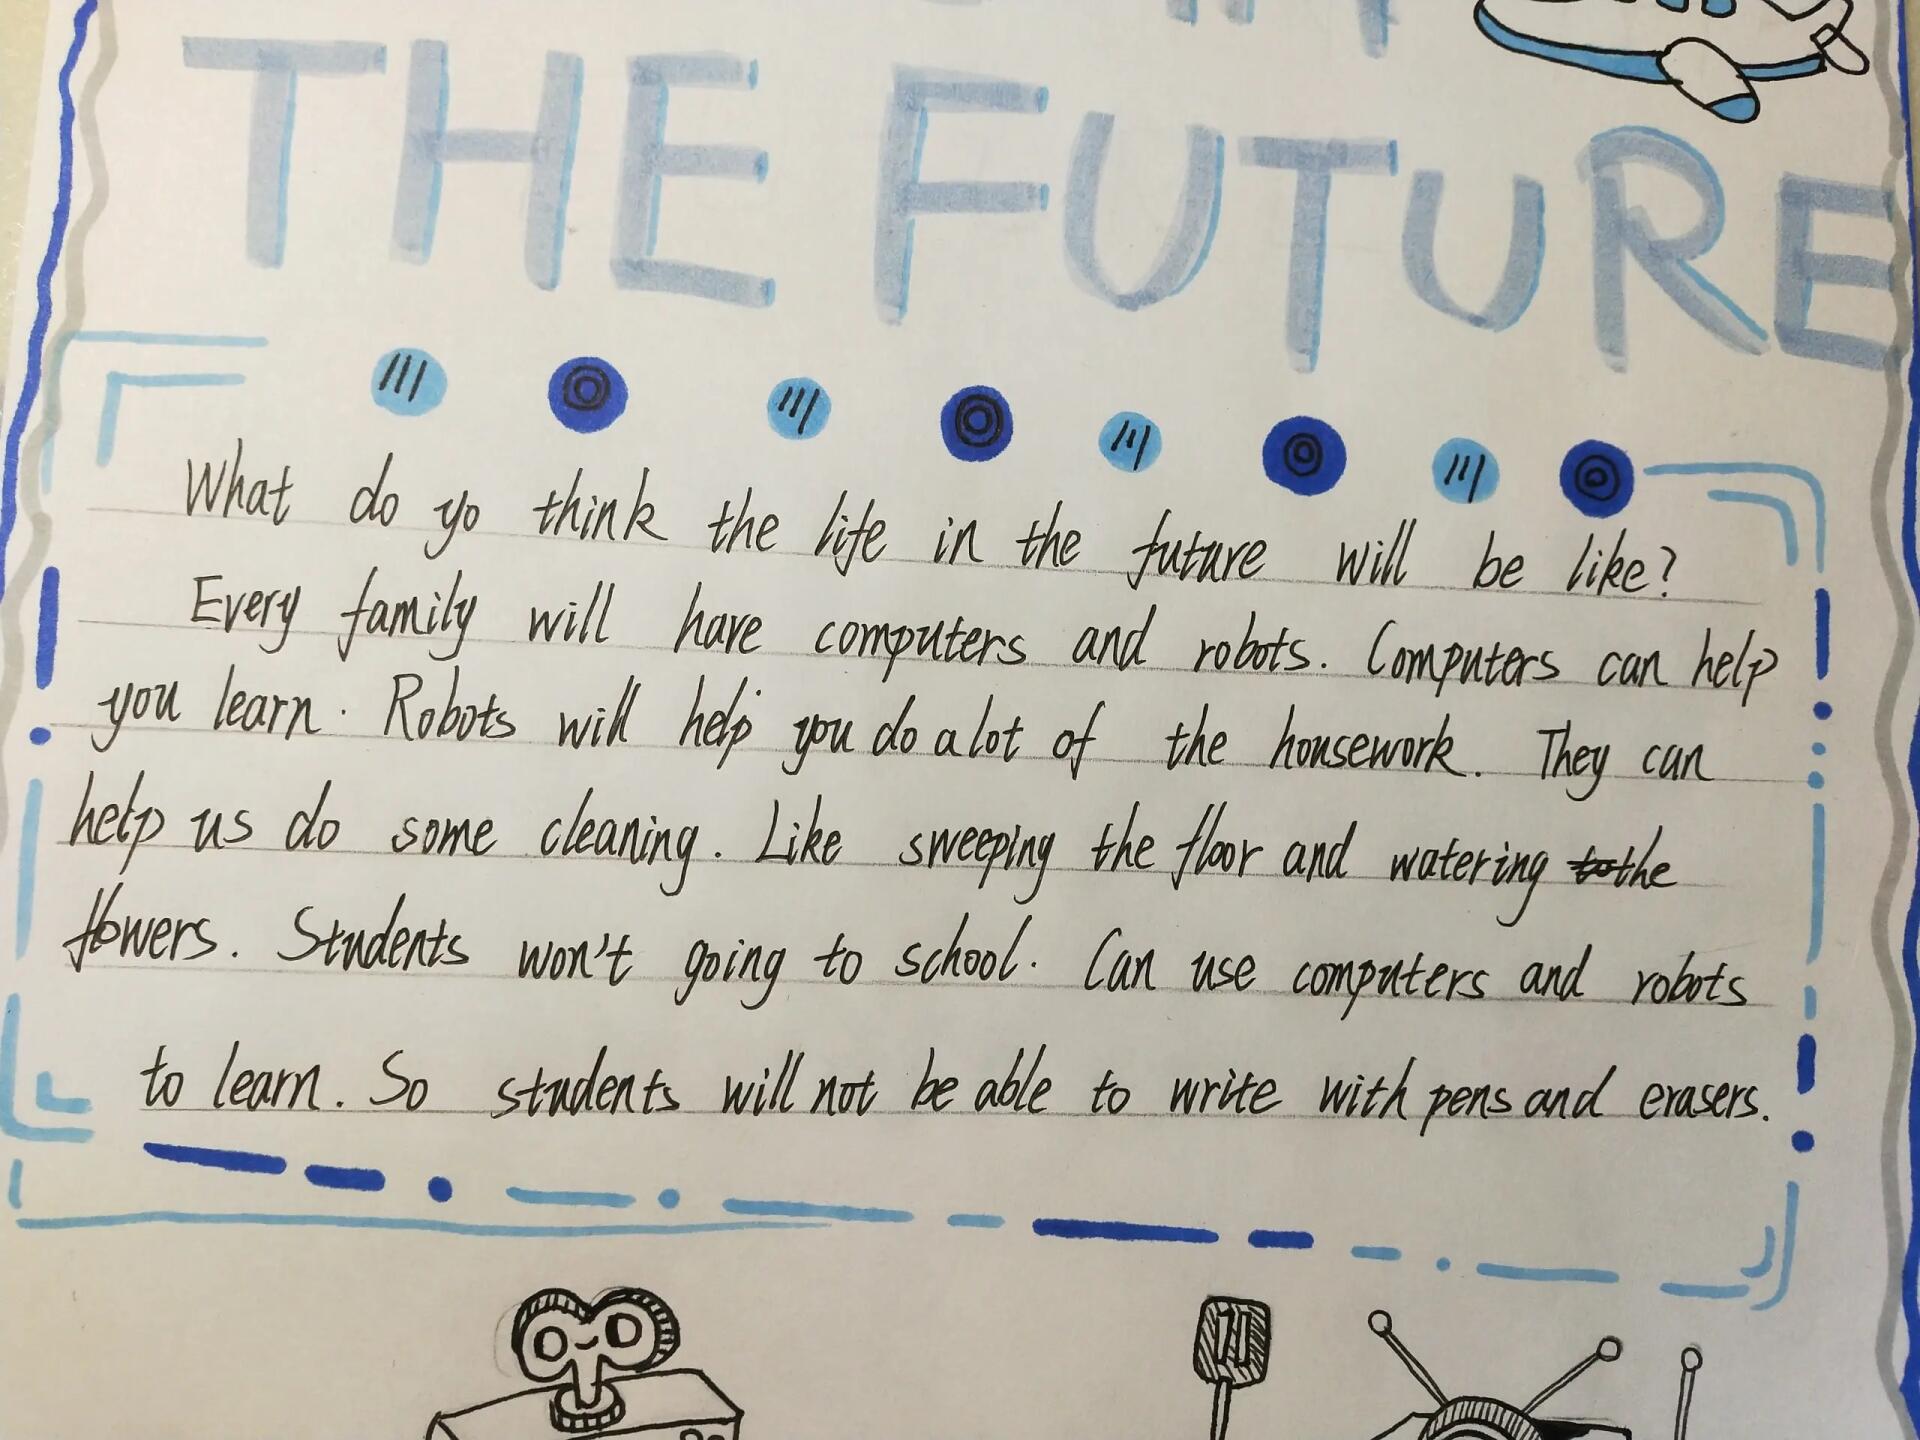 THE FUTURE
What do yo think the life in the future will be like?
Every family will have computers and robots. Computers can help
you learn. Robots will help you do a lot of the housework. They can
help us do some cleaning. Like sweeping the floor and watering the
flowers. Students won't going to school. Can use computers and robots
to learn. So students will not be able to write with pens and erasers.